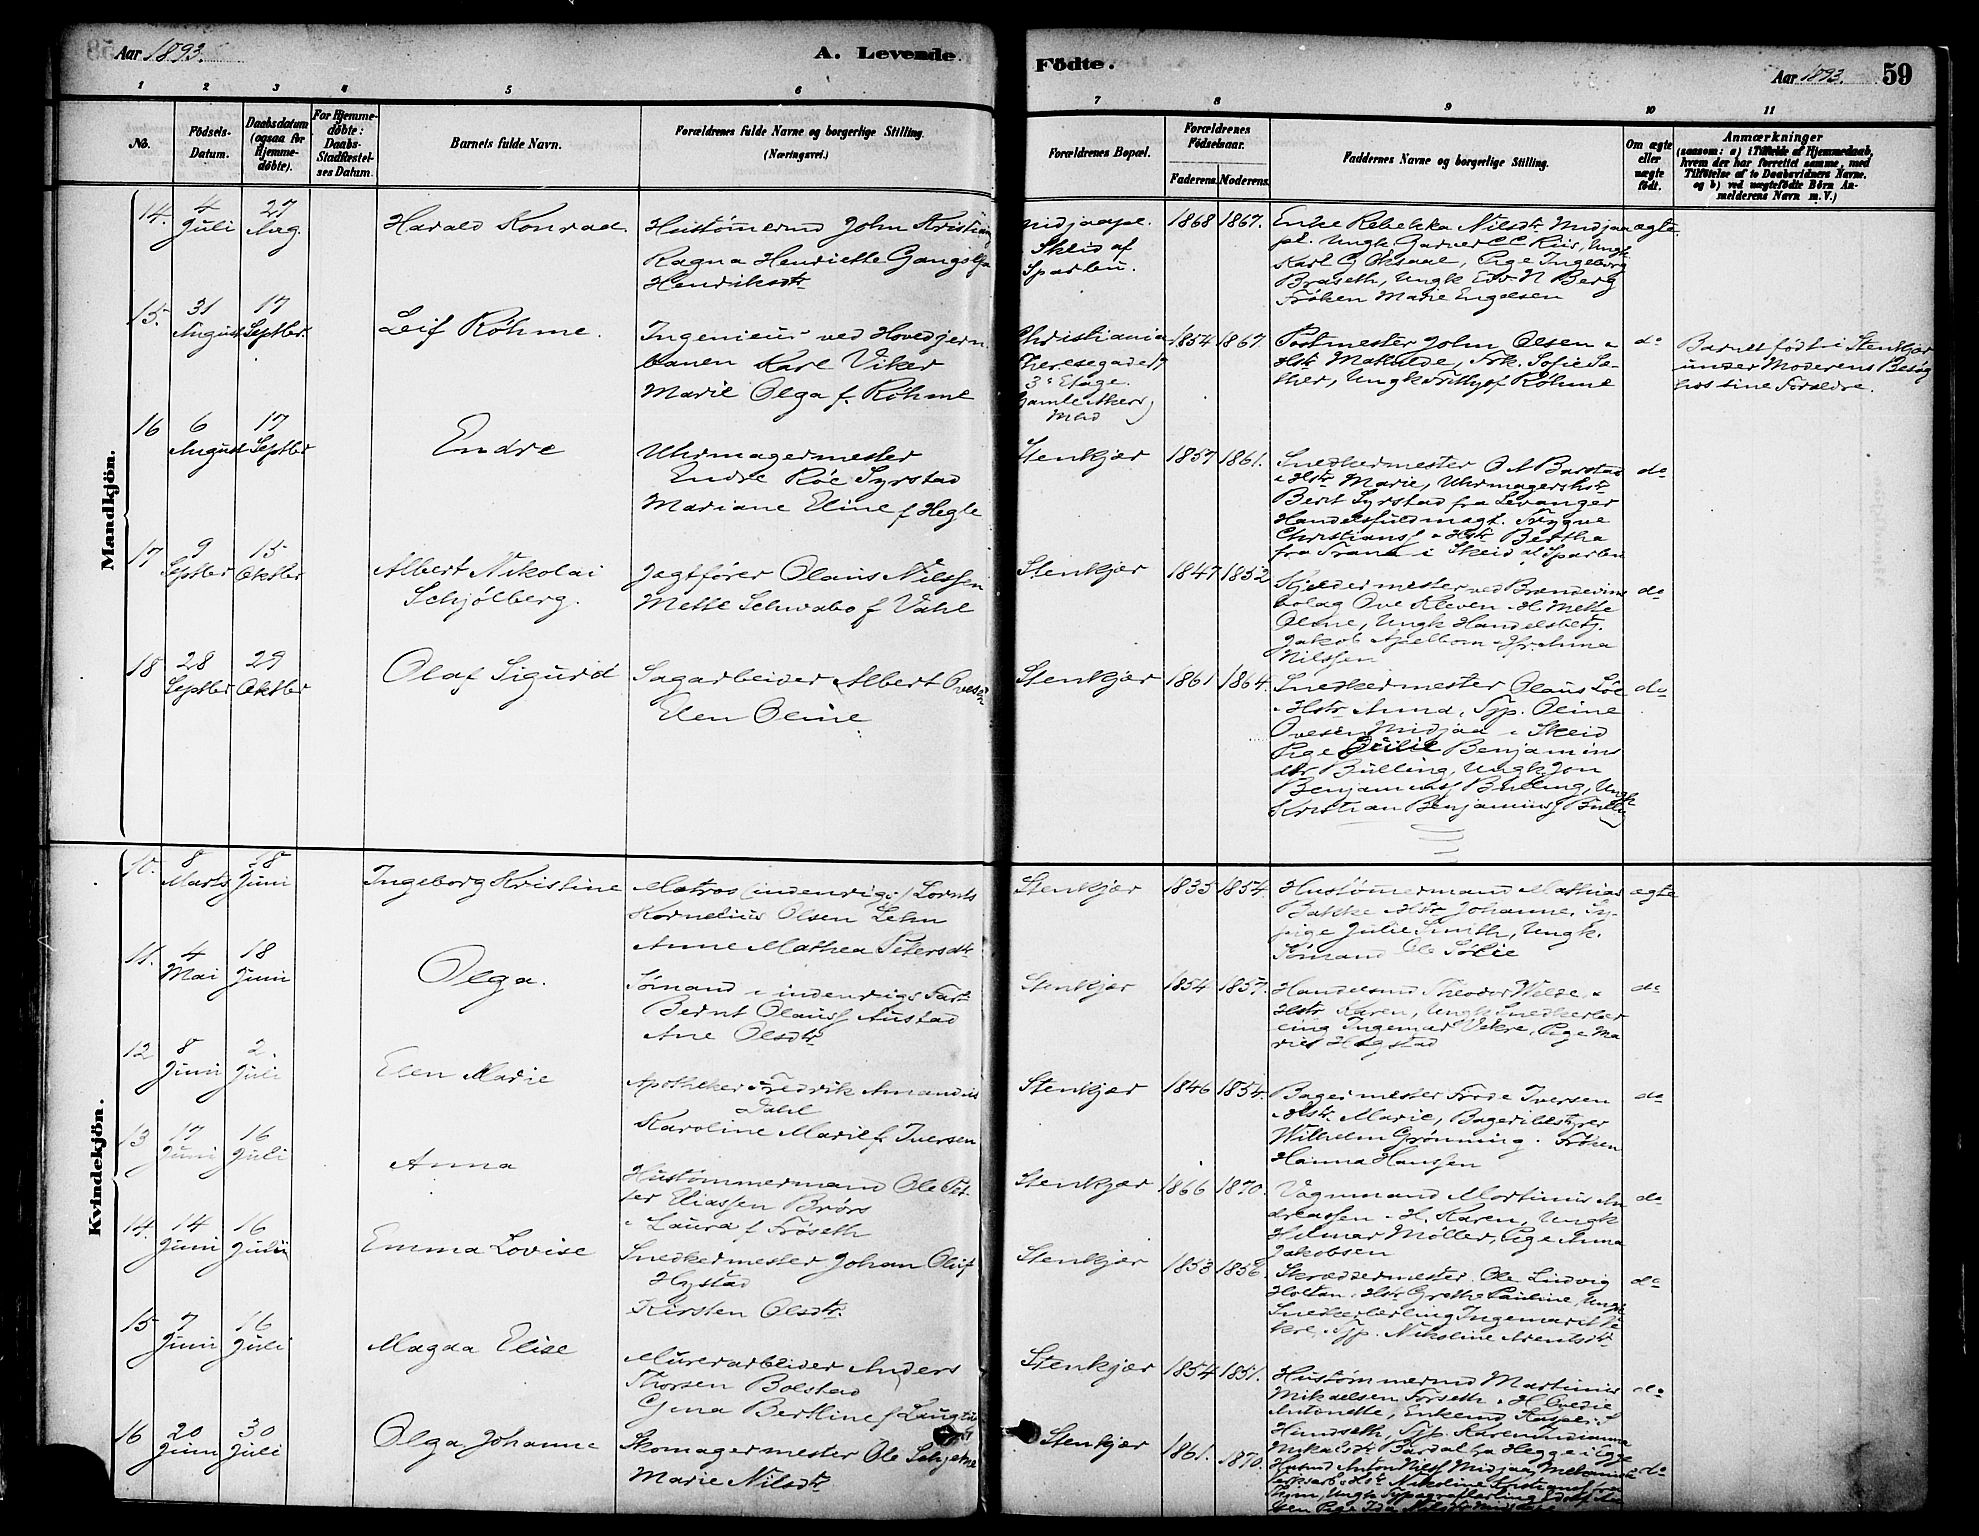 Aar 1893.
A. Levende
Födte.
Aar 1893.
59
1 2 3 4 5 6 7 8 9 10 11
No.
Födsels-
Datum.
Daabsdatum
(ogsaa for
Hjemme-
döbte).
For Hjemme-
döbte:
Daabs-
Stadfæstel-
ses Datum.
Barnets fulde Navn.
Forældrenes fulde Navne og borgerlige Stilling.
(Næringsvei.)
Forældrenes Bopæl.
Forældrenes
Födselsaar.
Faderens. Moderens.
Faddernes Navne og borgerlige Stilling.
Om ægte
eller
uægte
födt.
Anmærkninger
(saasom: a) i Tilfælde af Hjemmedaab,
hvem der har forrettet samme, med
Tilföielse af to Daabsvidners Navne.
og b) ved uægtefödte Börn An-
melderens Navn m.V.)
Mandkjön.
14.
4
Juli
27
Aug.
Harald Konrad
Hustömermd John Kristian
Ragna Henriette
Henriksdtr
Midjaapl.
Skeid af
Sparbu.
1868 1867.
Enke Rebekka Nilsdtr Midjaa
pl. Ungk Garver C C Riis, Ungk
Karl G Oksaal, Pige Ingeborg
Braseth, Ungk Edv. N Berg
Fröken Marie Engelsen
ægte
15.
31
August
17
Septbr.
Leif Röhme.
Ingenieur ved Hovedjern
banen Karl Viker
Marie Olga f. Röhme
Christiania
Theresegade
3de Etage.
Gamle Akers
Mhd
1854 1867.
Postmester John Olsen &
Hstr Mathilde, Frk. Sofie Sa-
ther, Ungk Frithjof Röhme
do
Barnet födt i Stenkjær
under Moderens Besög
hos sine Forældre.
16
6
August
17
Septbr
Endre
Uhrmagermester
Endre Röe Syrstad
Mariane Eline f Hegle
Stenkjær
1857 1861.
Snedkermester O A Barstad
& Hstr Marie, Uhrmagershstr
Berit Syrstad fra Levanger
Handelsfuldmægt. Trygve
Christians & Hstr Bertha
fra Trana i Skeid af Sparbu
do
17
9
Septbr
15
Oktbr
Albert Nikolai
Schjölberg.
Jagtförer Olaus Nilssen
Mette Schwabo f Vahl
Stenkjær
1847 1852
Kjeldermester ved Brændevins
bolag Ove Kleven & H. Mette
Oline, Ungk Handelsbetj.
Jakob Apelbom & Jfr. Anna
Nilssen
do
18
28
Septbr
29
Oktbr
Olaf Sigurd
Sagarbeider Albert Ovesen
Elen Oline
Stenkjær
1861 1864.
Snedkermester Olaus Löe
& Hstr Anna, Syp. Oline
Ovesen Midjaa i Skeid
Pige Julie Benjamins
dtr Bülling, Ungk Jon
Benjamins Bülling, Ungk
Kristian Benjamins Bülling
do
Kvindekjön.
10.
8
Marts
18
Juni
Ingeborg Kristine
Matros (indenrigs) Lornts
Kornelius Olsen Lehn
Anne Mathea Petersdtr
Stenkjær
1835 1854.
Hustömmermand Mathias
Bakke & Hstr Johanne, Sy-
pige Julie Smith, Ungk.
Sömand Ole Sölie
ægte
11.
4
Mai
18
Juni
Olga.
Sömand i indenrigs Fart
Bernt Olaus Austad
Ane Olsdtr
Stenkjær
1854 1857.
Handelsmd Theodor Welde, &
Hstr Karen, Ungk Snedkerlær
ling Ingemar Vekre, Pige Ma
rie Hegstad
do
12
8
Juni
2
Juli
Elen Marie
Apotheker Fredrik Amandus
Dahl
Karoline Marie f. Iversen
Stenkjær
1846 1854.
Bagermester Frode Iversen
& Hstr. Marie, Bageribestyrer
Wilhelm Grönning. Fröken
Hanna Hanssen
do
13
17
Juni
16
Juli
Anna
Hustömmermand Ole Pet-
ter Eliassen Brörs
& Laura f Fröseth
Stenkjær
1866 1870.
Vognmand Martinus An
dreassen & H. Karen, Ungk
Hilmar Möller, Pige Anna
Jakobsen
do
14.
14
Juni
16
Juli
Emma Lovise
Snedkermester Johan Oluf
Hystad
Kirsten Olsdtr.
Stenkjær
1853 1856.
Skræddermester Ole Ludvig
Holtan & Hstr Grethe Pauline, Ungk
Snedkerlærling Ingemar Ve
kre, Syp. Nikoline Arentsdtr
do
15
7
Juni
16
Juli
Magda Elise
Murerarbeider Anders
Thorsen Bolstad
Gina Bertline f
Stenkjær
1854 1851.
Hustömmermd Martinus
Mikaelsen Forseth & H. Ovedie
Antonette, Enkemd Kasper
Hindseth, Syp. Karen
Mikalsdtr Bardal fra Hegge i Egge
do
16
20
Juni
30
Juli
Olga Johanne
Skomagermester Ole
Marie Nilsdtr
Stenkjær
1861. 1870.
Husmd Anton Nilss Midjaa, Mekanisk
Hstr Nikoline
Ungk. Typograflærling
Pige Ida Nilsdtr
do